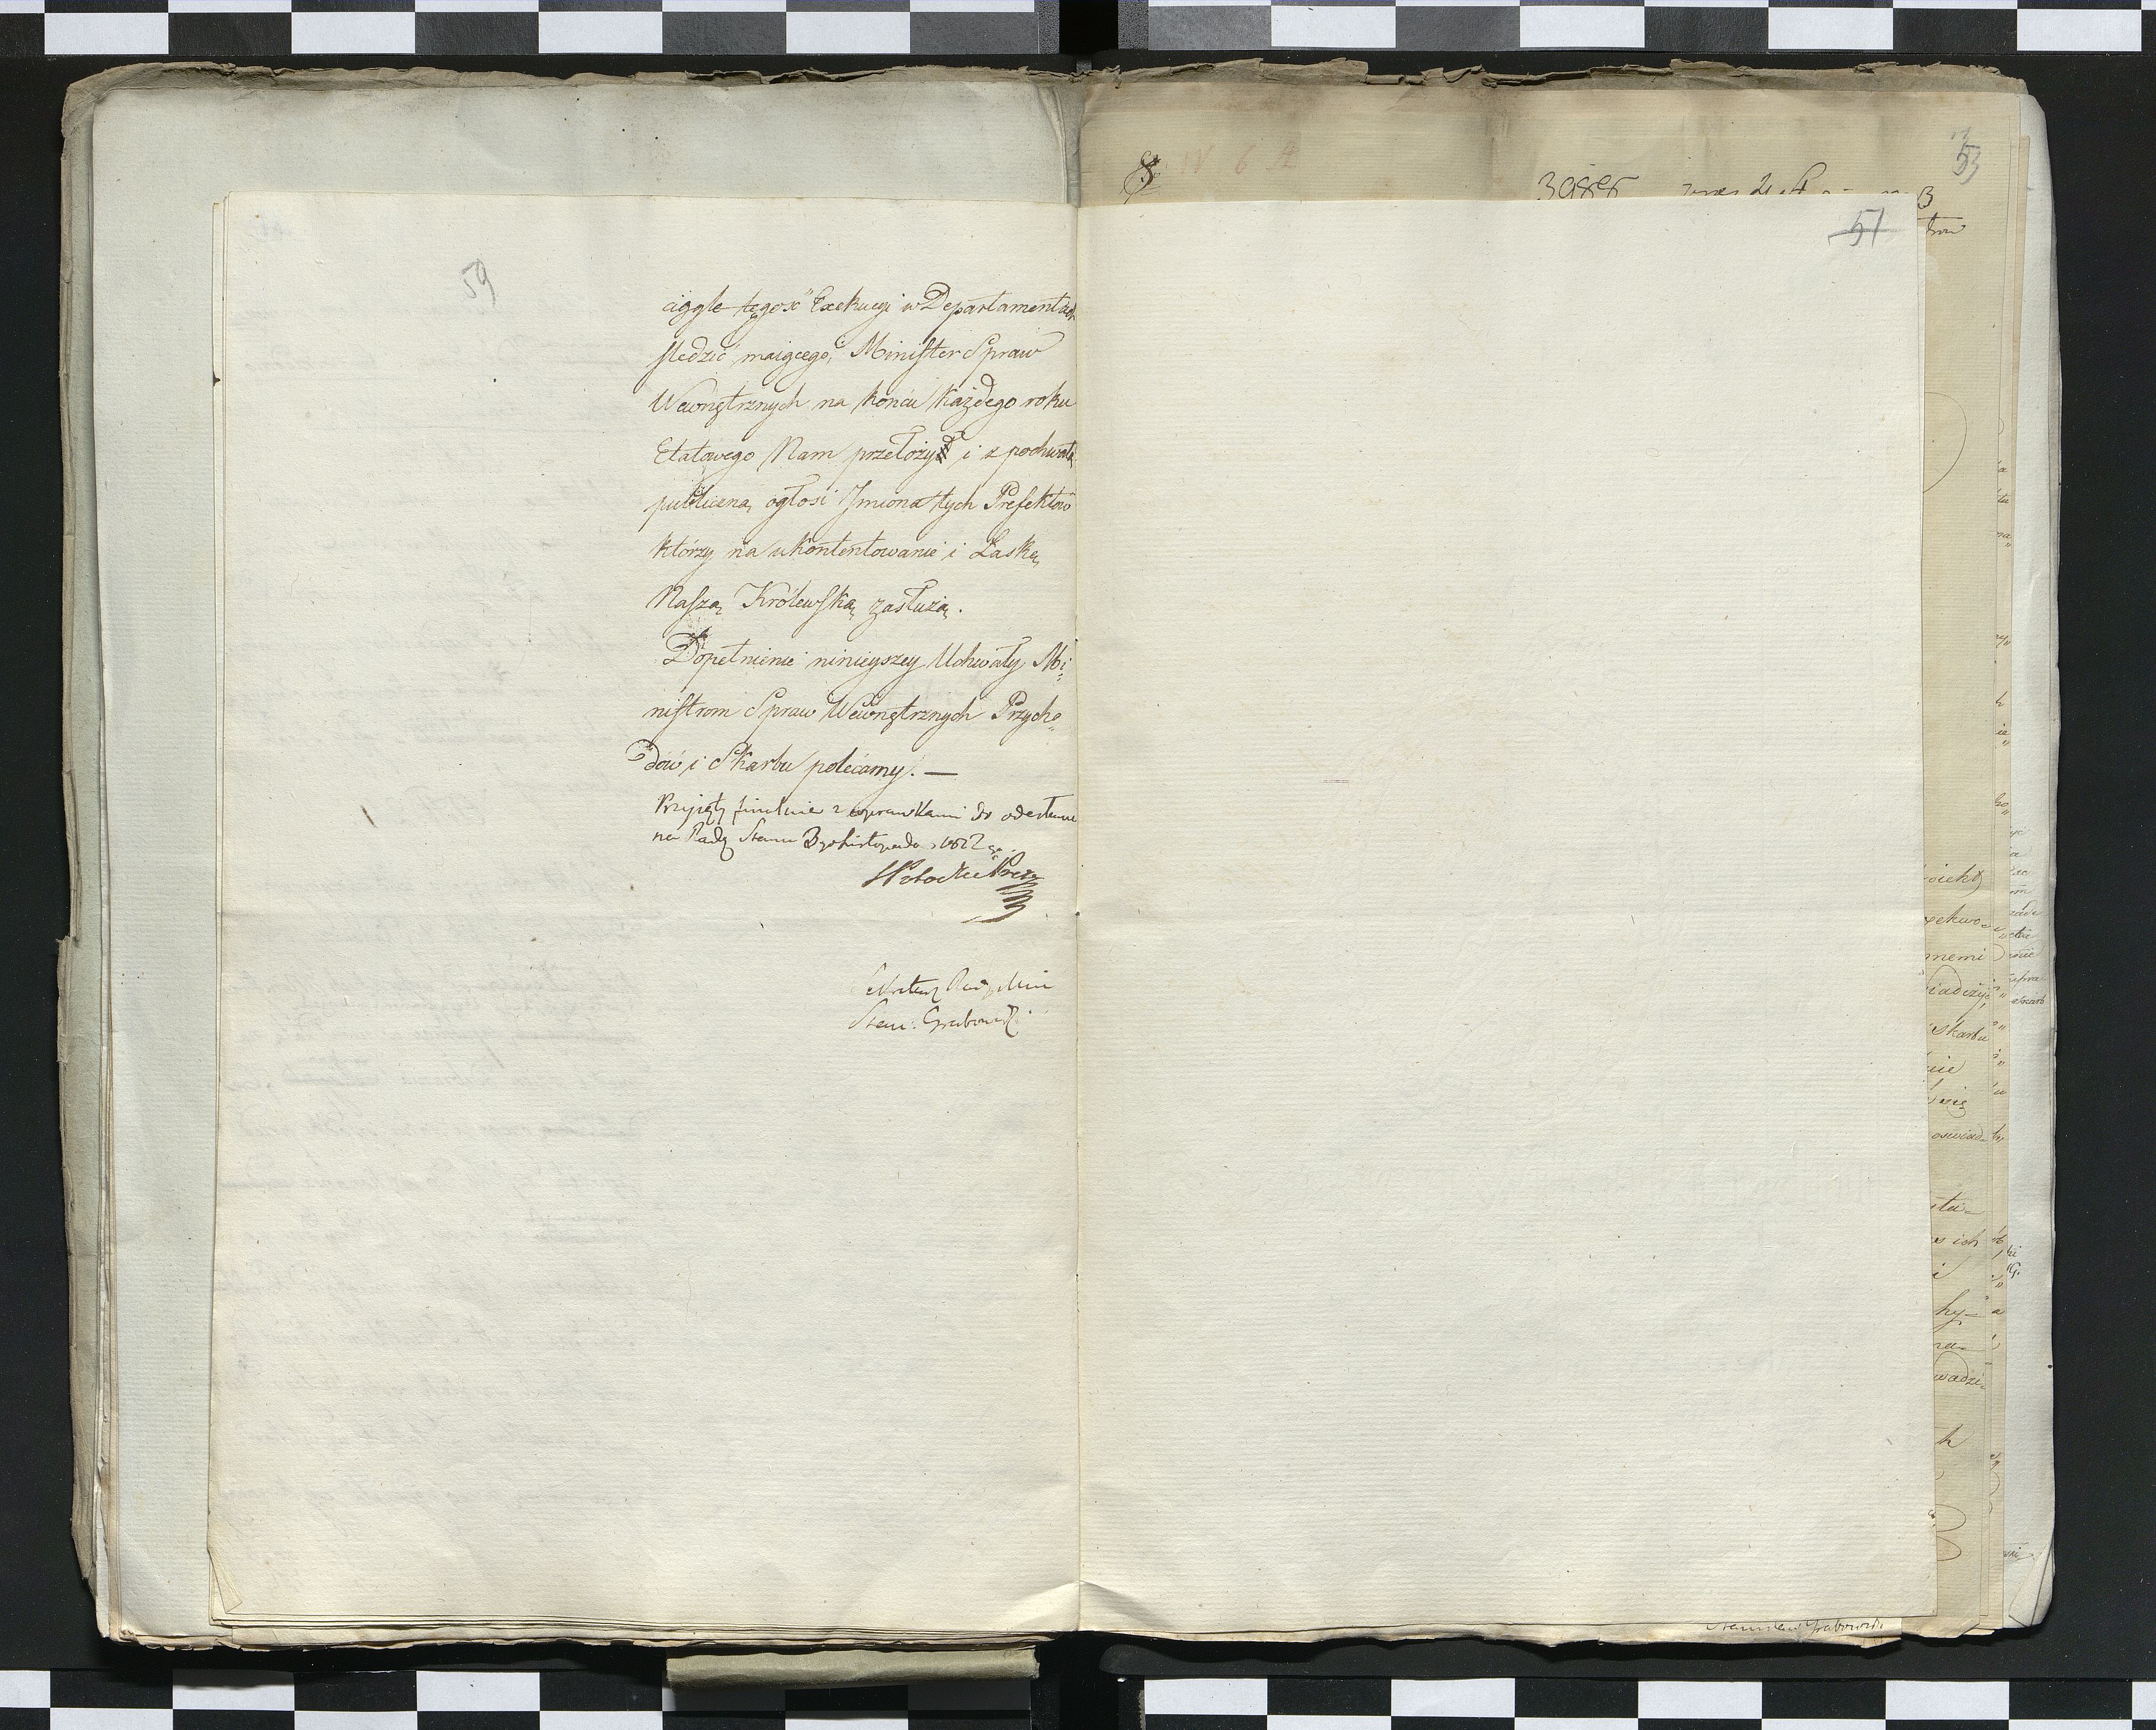 59
ciągle tegoż Exekucyi w Departamentach
śledzić maiącego, Minister Spraw
Wewnętrznych na końcu każdego roku
Etatowego Nam przełoży i z pochwałą
publiczną ogłosi Jmiona tych Prefektów
którzy na ukontentowanie i Łaskę
Naszą Królewską zasłużą.
Dopełnienie ninieyszey Uchwały Mi:
nistrom Spraw Wewnętrznych Przycho
dów i Skarbu polecamy. —
Przyięty finalnie z poprawkami do odesłania
na Radę Stanu Listopada
Potocki Prez
Sekretarz Rady Min
Stan: Grabowski
51
53
oiekt
exekwo
nemi
iadczyć
skarbu
oswiad
w ich
hy-
na-
wadze
Stanisław Grabowski